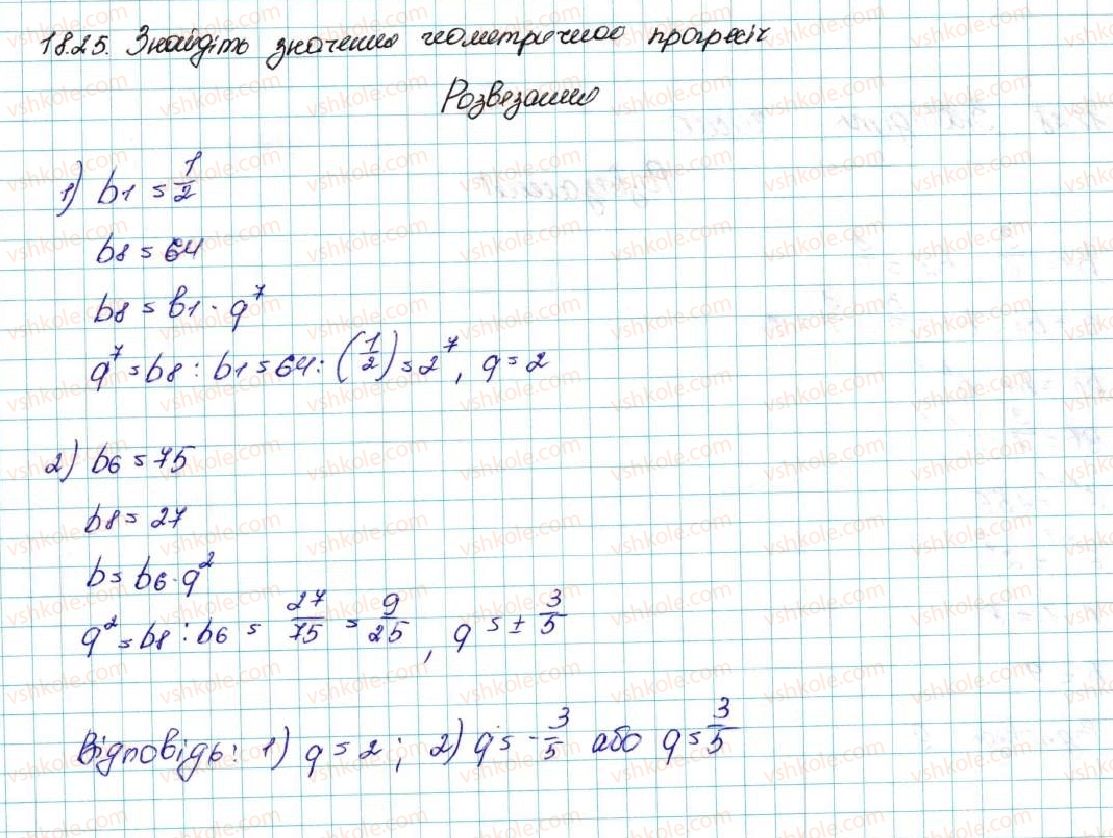 18.25. Знайдіть значення геометричної прогресії
Розвязання
1) b1 = 1/2
b8 = 64
b8 = b1 · q^7
q^7 = b8 : b1 = 64 : (1/2) = 2^7, q = 2
2) b6 = 75
b8 = 27
b = b6 · q^2
q^2 = b8 : b6 = 27/75 = 9/25, q = ± 3/5
Відповідь: 1) q = 2; 2) q = - 3/5 або q = 3/5